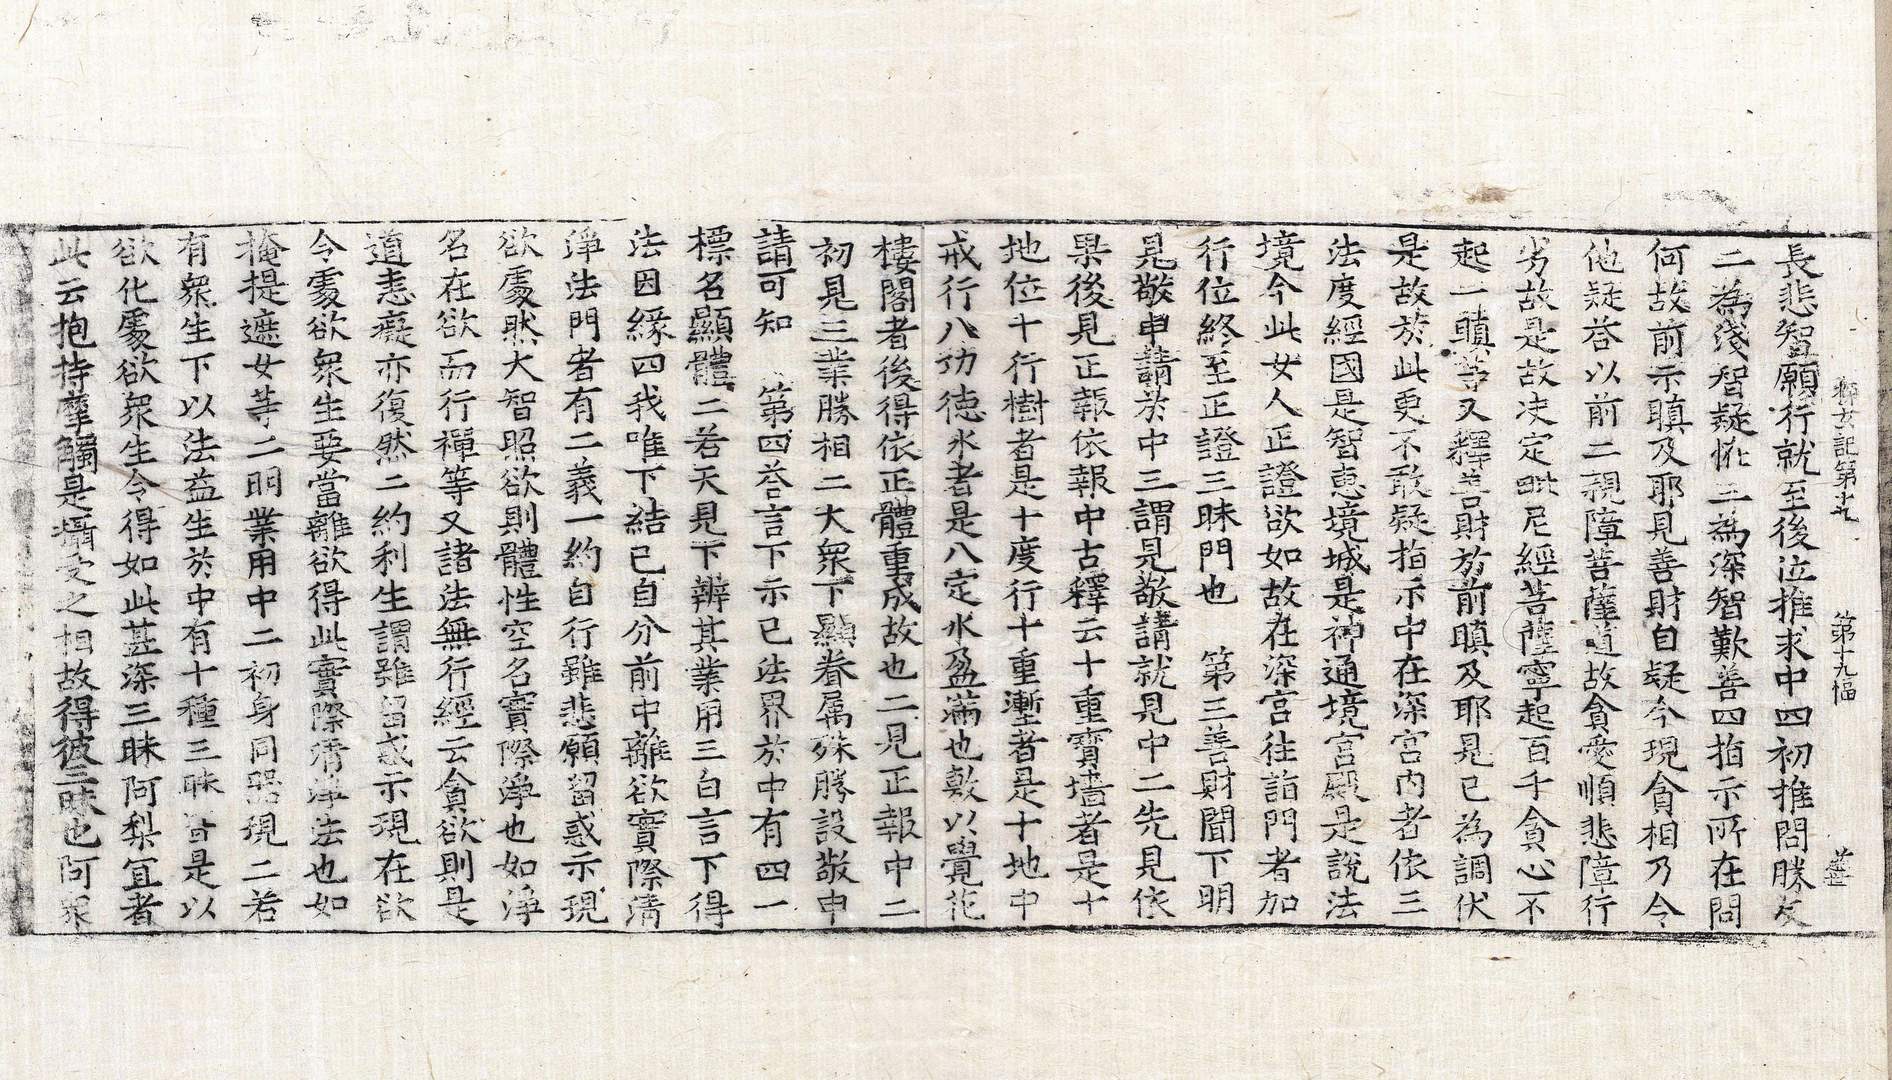 長悲智願行就至後泣推求中四初推問勝友
二為淺智疑恠三為深智歎善四指示所在問
何故前示瞋及耶見善財自疑今現貪相乃令
他疑荅以前二視障菩薩道故貪愛順悲障行
劣故是故决定毗尼經菩薩寧起百千貪心不
起一瞋等又釋善財於前瞋及耶見已為調伏
是故於此更不敢疑指示中在深宮内者依三
法度經國是智恵境城是神通境宮殿是說法
境今此女人正證欲如故在深宮往詣門者加
行位終至正證三昧門也 第三善財聞下明
見敬申請於中三謂見敬請就見中二先見依
果後見正報依報中古釋云十重寳墻者是十
地位十行樹者是十度行十重壍者是十地中
戒行八功徳水者是八定水盈滿也敷以覺花
樓閣者後得依正體重成故也二見正報中二
初見三業勝相二大衆下顯眷属殊勝設敬申
請可知 第四荅言下示已法界於中有四一
標名顯體二若天見下辨其業用三白言下得
法因緣四我唯下結已自分前中離欲實際清
淨法門者有二義一約自行雖悲願留惑示現
欲處然大智照欲則體性空名實際淨也如淨
名在欲而行禪等又諸法無行經云貪欲則是
道恚癡亦復然二約利生謂雖留惑示現在欲
令處欲衆生要當離欲得此實際清淨法也如
掩提遮女等二明業用中二初身同器現二若
有衆生下以法益生於中有十種三昧皆是以
欲化處欲衆生令得如此甚深三昧阿梨冝者
此云抱持摩觸是攝受之相故得彼三昧也阿衆
第十九幅